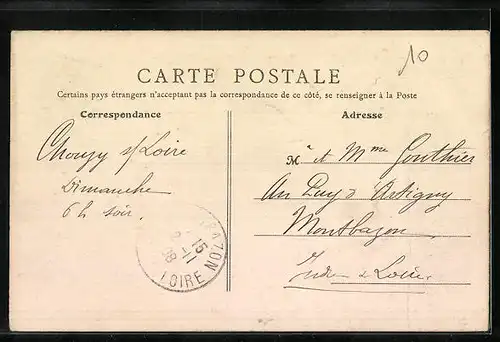 10
CARTE POSTALE
Certains pays étrangers n'acceptant pas la correspondance de ce côté, se renseigner à la Poste
Correspondance
Adresse
Chouzy s/Loire
Dimanche
6h soir.
M' et Mme Gouthier
Au Puy d'Artigny
Montbazon
Indre & Loire
BAZON
15
-11
08
LOIRE